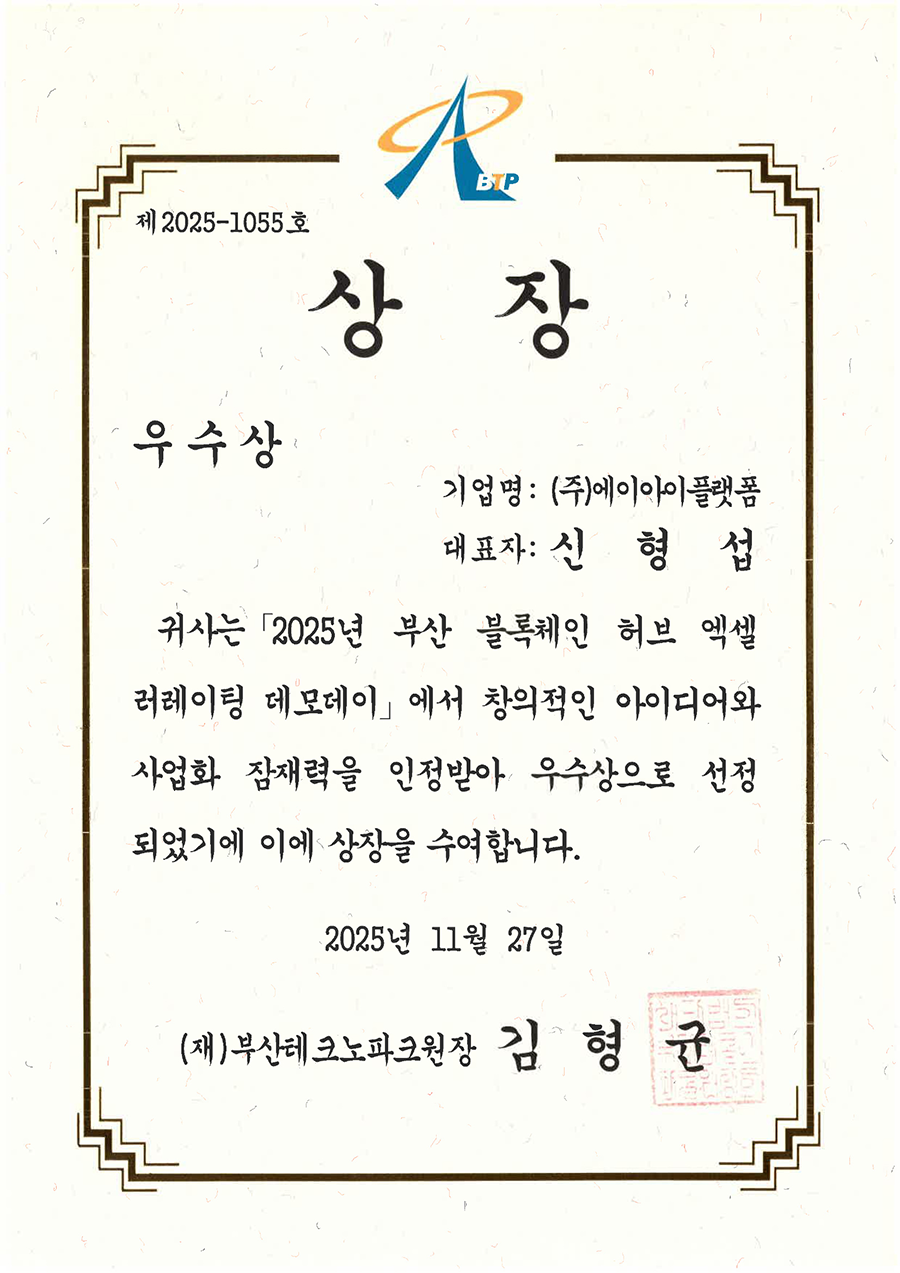 BTP
제2025-1055호
상 장
우수상
기업명: (주)에이아이플랫폼
대표자: 신 형 섭
귀사는「2025년 부산 블록체인 허브 엑셀
러레이팅 데모데이」에서 창의적인 아이디어와
사업화 잠재력을 인정받아 우수상으로 선정
되었기에 이에 상장을 수여합니다.
2025년 11월 27일
(재)부산테크노파크원장 김 형 균